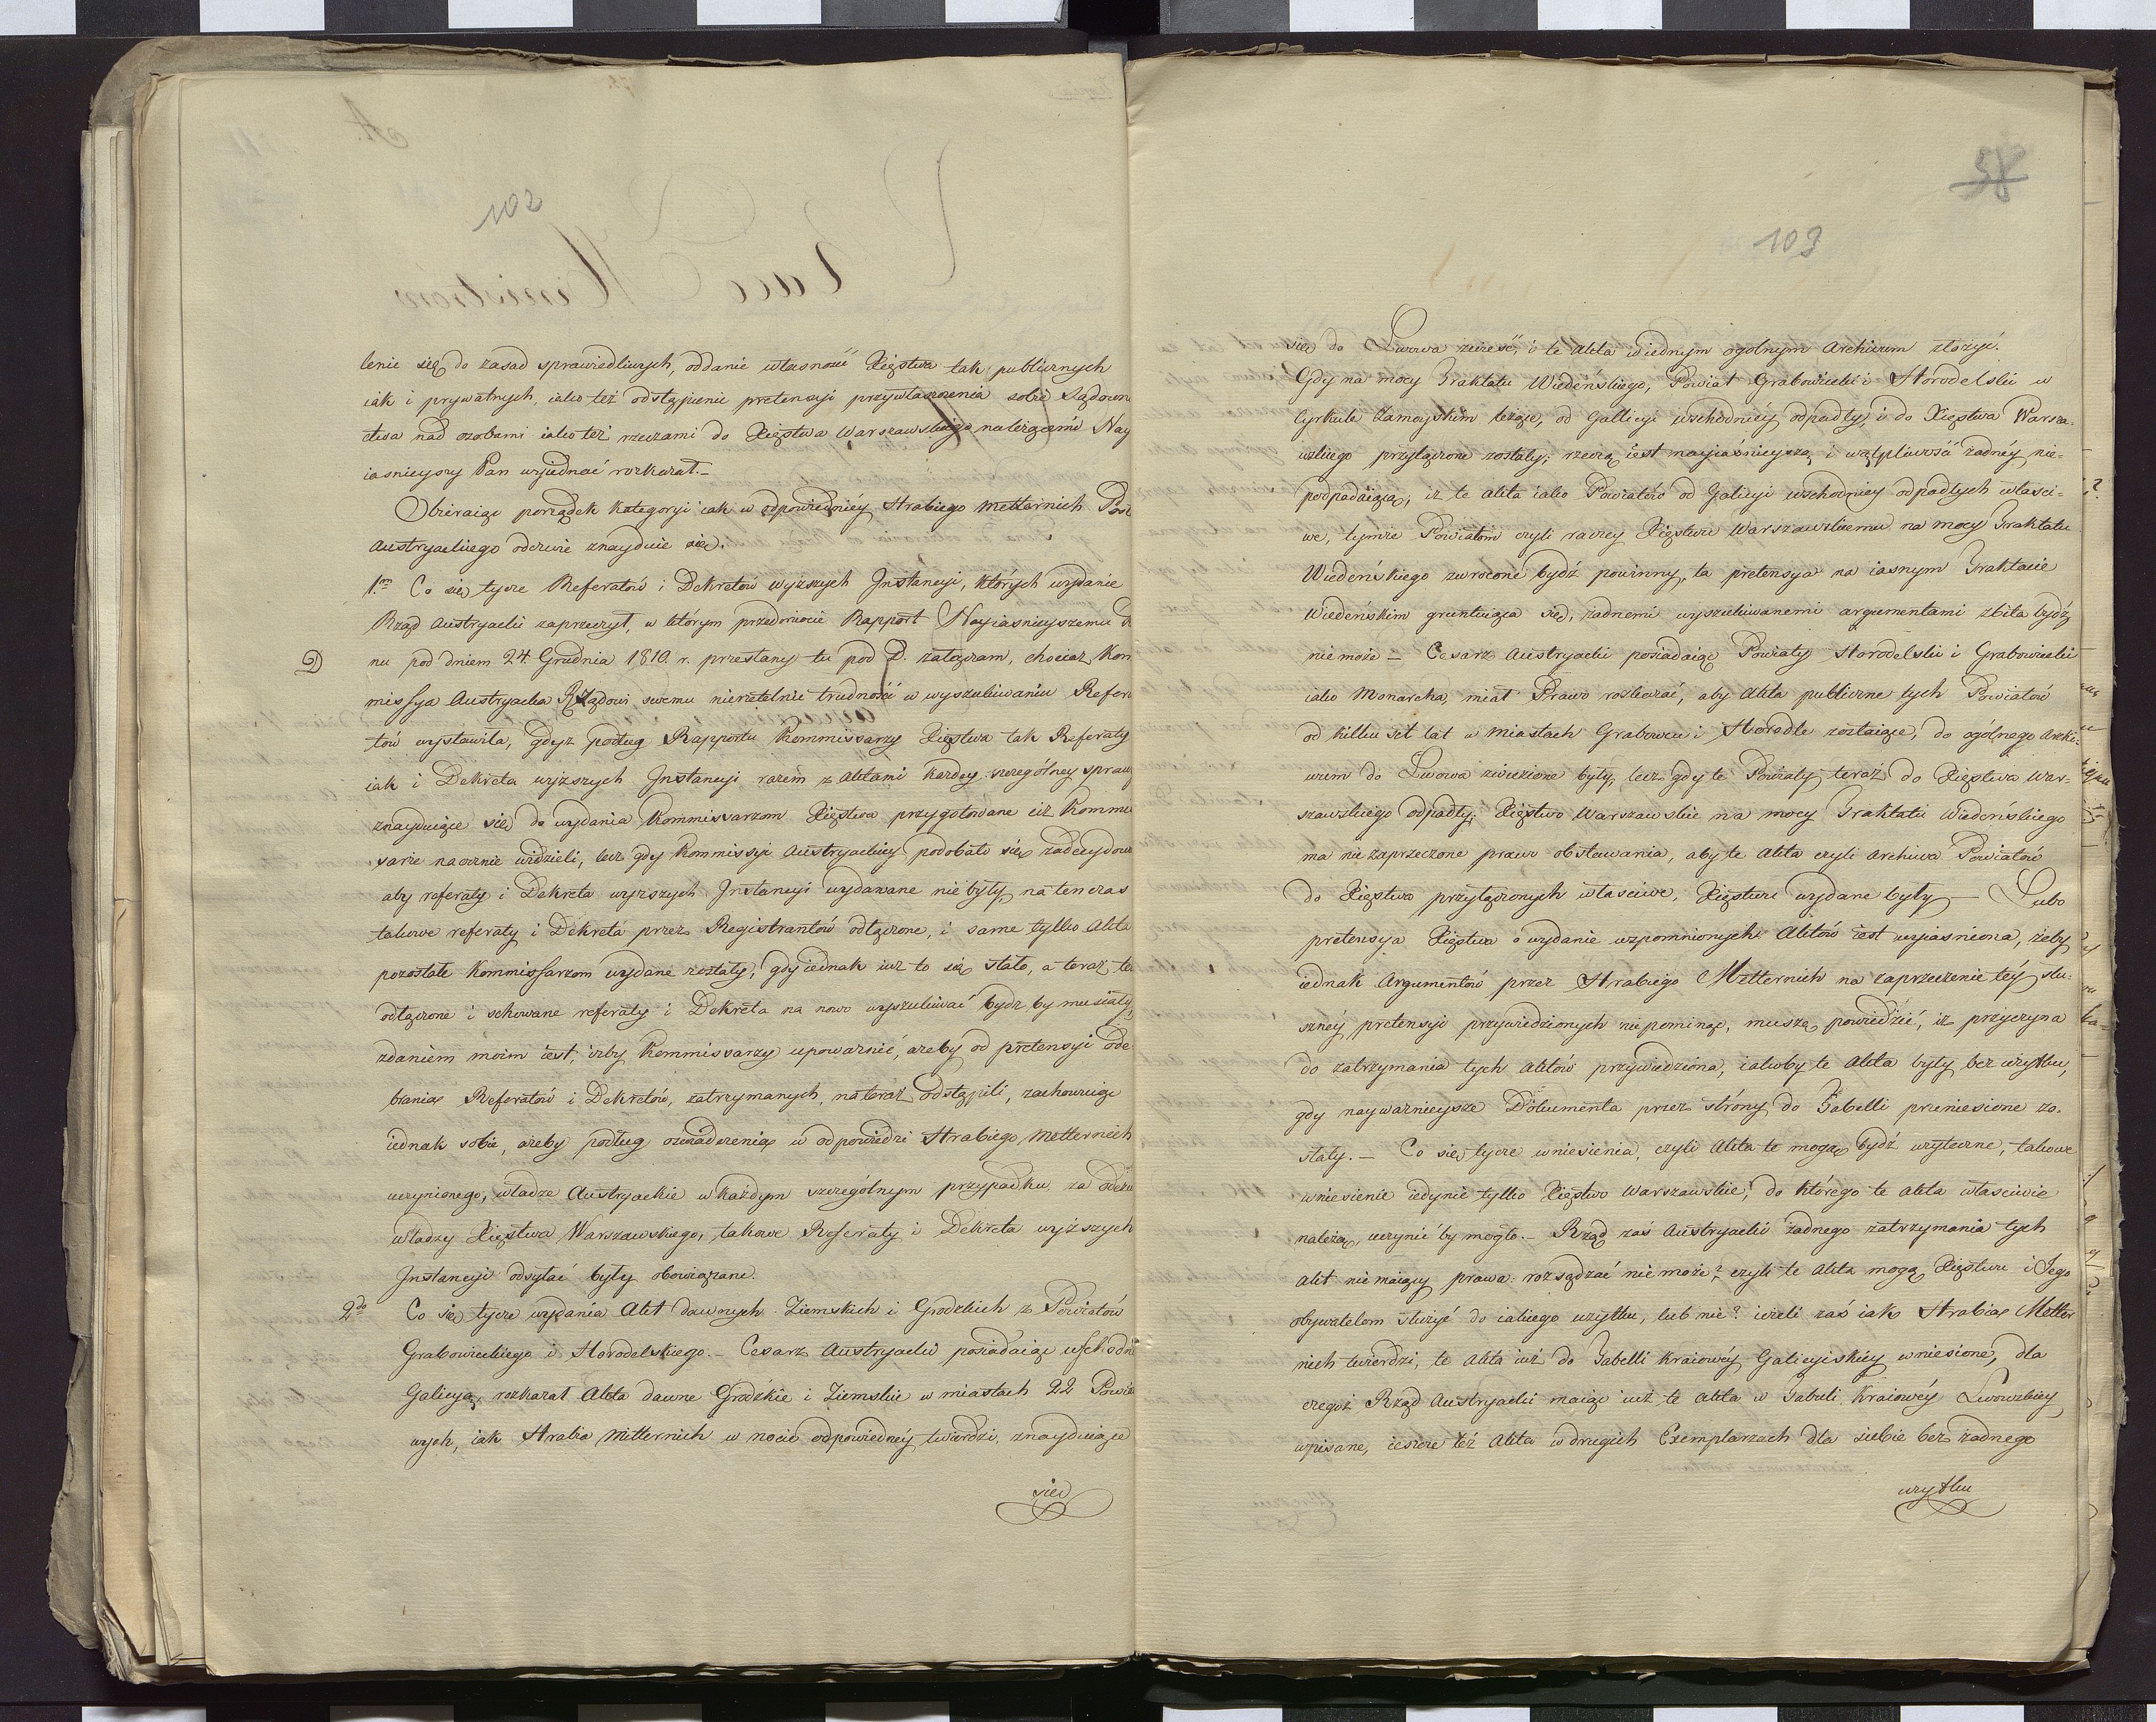 102
lenie się do zasad sprawiedliwych, oddanie własności Xięstwa tak publicznych
iak i prywatnych, iako też odstąpienie pretensyi przywłaszczenia sobie Sądown
ctwa nad osobami iako też rzeczami do Xięstwa Warszawskiego należącemi Nay
iasnieyszy Pan wyiednać rozkazał.
Obieraiąc porządek kategoryi iak w odpowiedniéy Hrabiego Metternich Posł
Austryackiego odezwie znayduie się.
1mo Co się tycze Referatów i Dekretów wyższych Instancyi, których wydanie
Rząd Austryacki zaprzeczył, w którym przedmiocie Rapport Nayiaśnieyszemu
D nu pod dniem 24. Grudnia 1810. r. przesłany tu pod D. załączam, chociaż Kom
missya Austryacka Rządowi swemu nierzetelnie trudność w wyszukiwaniu Refera
tów wystawiła, gdyż podług Rapportu Kommissarzy Xięstwa tak Referaty
iak i Dekreta wyższych Instancyi razem z Aktami każdey szczególney sprawy
znayduiące się do wydania Kommissarzom Xięstwa przygotowane iuż Kommis
sarze naocznie widzieli, lecz gdy Kommissyi Austryackiey podobało się zadecydow
aby referaty i Dekreta wyższych Instancyi wydawane nie były, na ten czas
takowe referaty i Dekreta przez Registrantów odłączone, i same tylko Akta
pozostałe Kommissarzom wydane zostały, gdy iednak iuż to się stało, a teraz te
odłączone i schowane referaty i Dekreta na nowo wyszukiwać bydź by musiały
zdaniem moim iest, iżby Kommissarzy upoważnić, ażeby od pretensyi ode
brania Referatów i Dekretów, zatrzymanych, na teraz odstąpili, zachowuiąc
iednak sobie, ażeby podług oświadczenia w odpowiedzi Hrabiego Metternich
uczynionego, władze Austryackie w każdym szczególnym przypadku za odezw
władzy Xięstwa Warszawskiego, takowe Referaty i Dekreta wyższych
Instancyi odsyłać były obowiązane.
2do Co się tycze wydania Akt dawnych Ziemskich i Grodzkich z Powiatów
Grabowieckiego i Horodelskiego. Cesarz Austryacki posiadaiąc wschodn
Galicyą, rozkazał Akta dawne Grodzkie i Ziemskie w miastach 22 Powia
wych, iak Hrabia Metternich w nocie odpowiedney twierdzi, znayduiące
się
58
103
się do Lwowa zwieść, i te Akta w iednym ogolnym Archiwum złożyć.
Gdy na mocy Traktatu Wiedeńskiego, Powiat Grabowiecki i Horodelski w
Cyrkule Zamoyskim leżące, od Gallicyi wschodniéy odpadły, i do Xięstwa Warsza-
wskiego przyłączone zostały; rzeczą iest nayiaśnieyszą i wątpliwość żadnéy nie-
podpadaiącą, iż te Akta iako Powiatów od Galicyi wschodniey odpadłych właści-
we, tymże Powiatom czyli raczey Xięstwu Warszawskiemu na mocy Traktatu
Wiedeńskiego zwrócone bydź powinny, ta pretensya na iasnym Traktacie
Wiedeńskim gruntuiąca się, żadnemi wyszukiwanemi argumentami zbita bydź
nie może — Cesarz Austryacki posiadaiąc Powiaty Horodelski i Grabowiecki
iako Monarcha, miał Prawo rozkazać, aby Akta publiczne tych Powiatów
od kilku set lat w miastach Grabowcu i Horodle zostaiące, do ogólnego Archi-
wum do Lwowa zwiezione były, lecz gdy te Powiaty teraz do Xięstwa War-
szawskiego odpadły; Xięstwo Warszawskie na mocy Traktatu Wiedeńskiego
ma nie zaprzeczone prawo obstawania, aby te Akta czyli Archiwa Powiatów
do Xięstwa przyłączonych właściwe, Xięstwu wydane były — Lubo
pretensya Xięstwa o wydanie wzpomnionych Aktów iest wyiaśniona, żeby
iednak Argumentów przez Hrabiego Metternich na zaprzeczenie téy słu-
szney pretensyi przywiedzionych nie pominąć, muszę powiedzieć, iż przyczyna
do zatrzymania tych Aktów przywiedziona, iakoby te Akta były bez użytku,
gdy nayważnieysze Dokumenta przez strony do Tabelli przeniesione zo-
stały. — Co się tycze wniesienia, czyli Akta te mogą bydź użyteczne, takowe
wniesienie iedynie tylko Xięstwo Warszawskie, do którego te Akta właściwie
należą, uczynić by mogło. — Rząd zaś Austryacki żadnego zatrzymania tych
Akt nie maiący prawa rozsądzać nie może? czyli te Akta mogą Xięstwu i Jego
obywatelom służyć do iakiego użytku, lub nie? ieżeli zaś iak Hrabia Metter
nich twierdzi, te Akta iuż do Tabelli Kraiowéy Galicyiskiey wniesione, dla
czegoż Rząd Austryacki maiąc iuż te Akta w Tabuli Kraiowéy Lwowskiey
wpisane, ieszcze też Akta w drugich Exemplarzach dla siebie bez żadnego
użytku